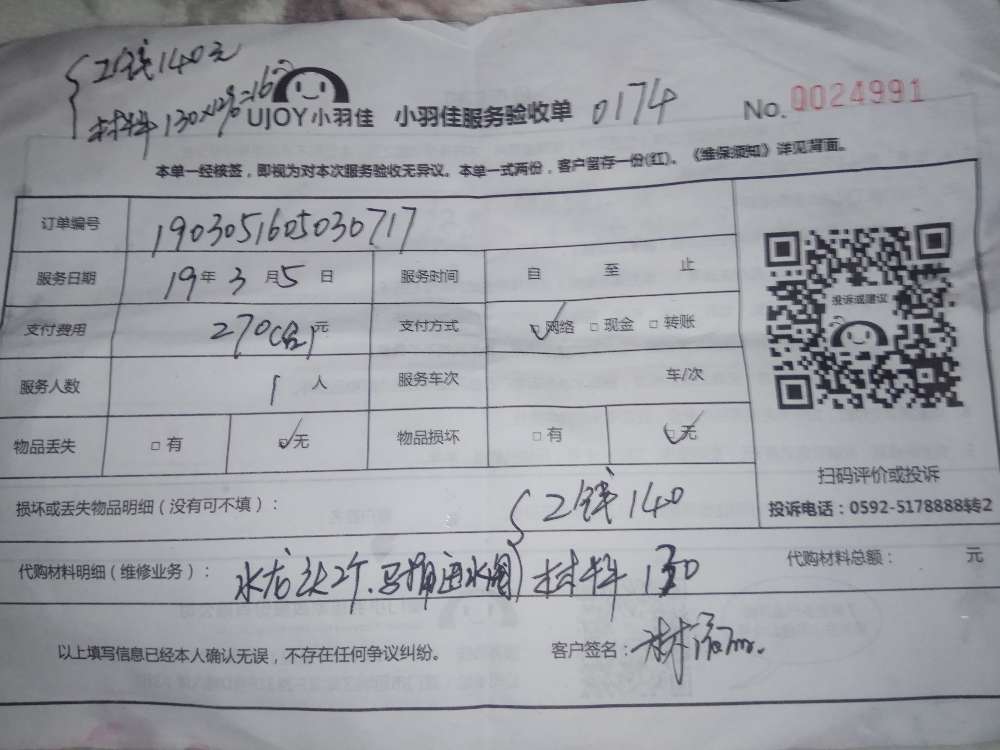 工钱140元
材料130×12%=16
UJOY小羽佳 小羽佳服务验收单 0174 No.0024991
本单一经核签，即视为对本次服务验收无异议。本单一式两份，客户留存一份(红)。《维保须知》详见背面。
订单编号 1903051605030717
服务日期 19年3月5日 服务时间 自 至 止
支付费用 270 元 支付方式 ☑网络 □现金 □转账
服务人数 1人 服务车次 车/次
物品丢失 □有 ☑无 物品损坏 □有 ☑无
投诉或建议
扫码评价或投诉
投诉电话：0592-5178888转2
损坏或丢失物品明细（没有可不填）： 工钱140
代购材料明细（维修业务）： 水龙头2个.马桶进水阀 材料130 代购材料总额： 元
以上填写信息已经本人确认无误，不存在任何争议纠纷。 客户签名：林